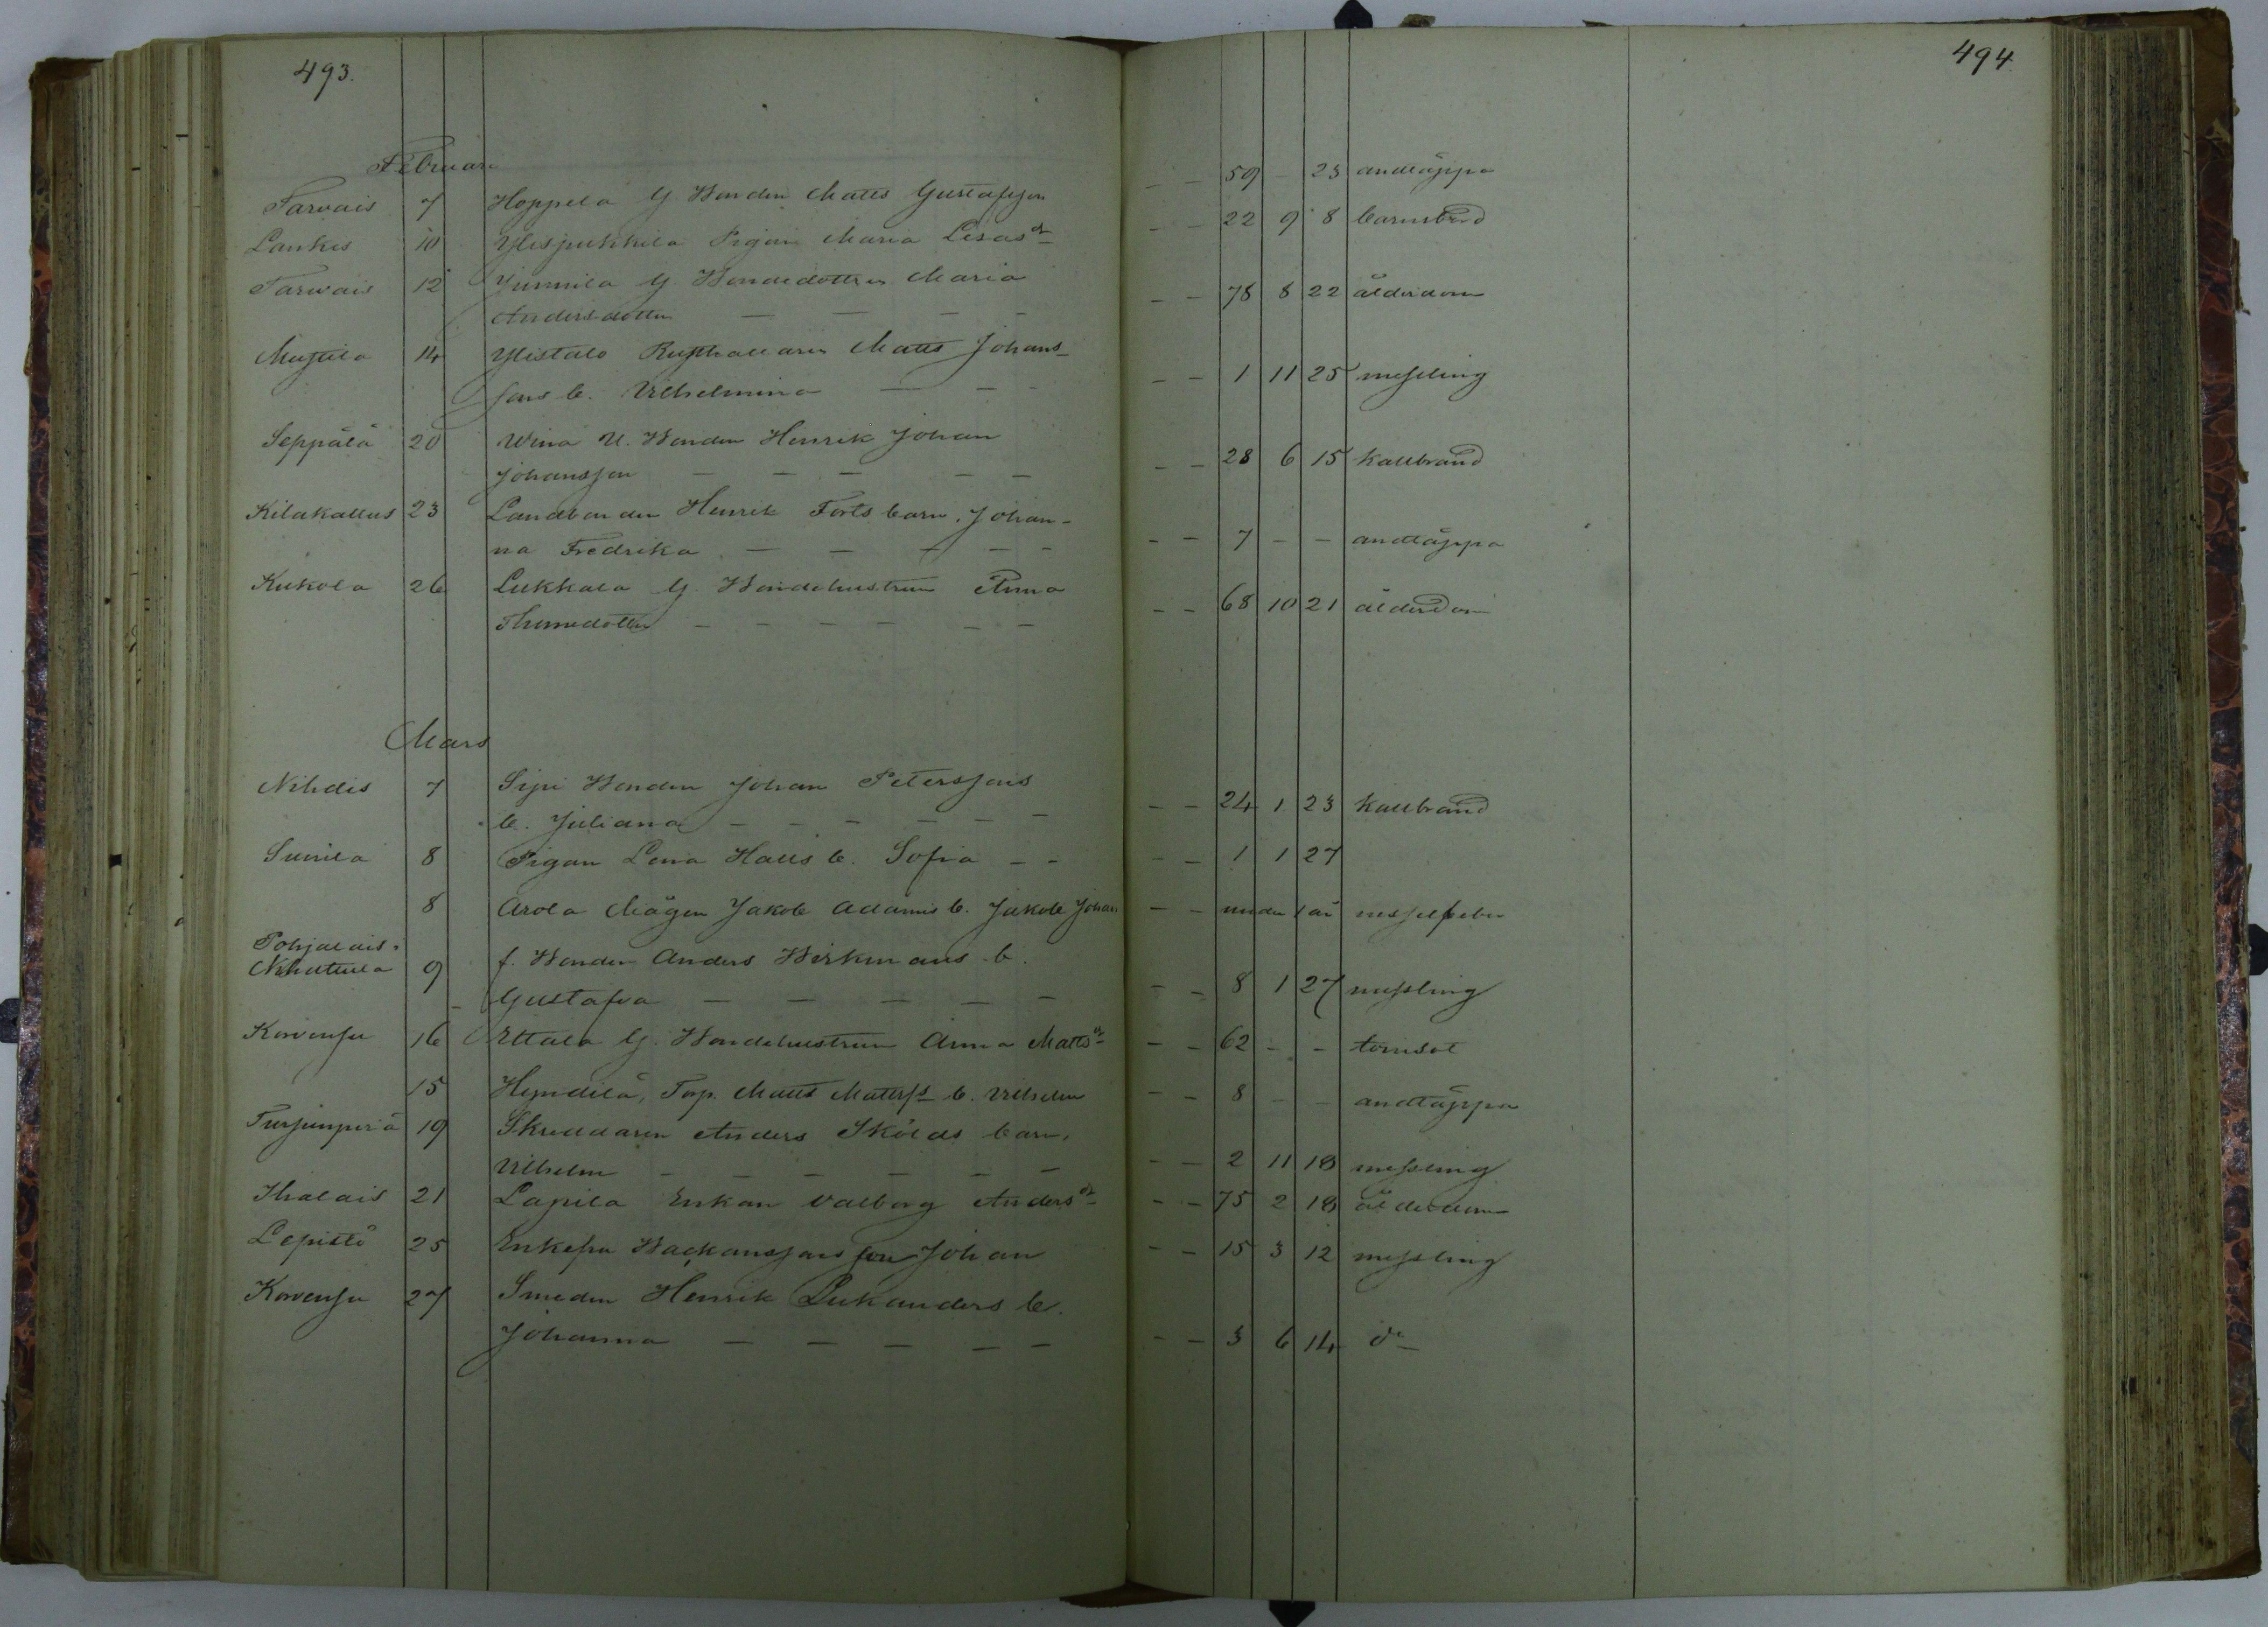 493.
494
Februari
Tarvais 7 Hoppela G Bonden Matts Gustafsson — — 59 — 23 andtäppa
Lankis 10 Ylisjukkila Pigan Maria Lisas dr — — 22 9 8 barnsbörd
Tarvais 12 Junnila G Bondedottren Maria
Andersdotter — — — — — 78 8 22 ålderdom
14 Ylistalo Rusthållaren Matts Johans-
sons b. Vilhelmina — — — — — 1 11 25 messling
Seppälä 20 U. Bonden Henrik Johan
Johansson — — — — — — — 28 6 15 kallbrand
Kilakallus 23 Landbonden Henrik Forts barn. Johan-
na Fredrika — — — — — — — 7 — — andtäppa
Kukola 26 Lukkala G Bondehustrun Anna
Thomedotter — — — — — — — — 68 10 21 ålderdom
Mars
Nihdis 7 Sipi Bonden Johan Peterssons
b. Juliana — — — — — — — — 24 1 23 kallbrand
Sunila 8 Pigan Lena Halls b. Sofia — — — — 1 1 27
8 Arola Mågen Jakob Adams b. Jakob Johan — — under 1 år nesselfeber
Pohjalais-
Nihuttula 9 f. Bonden Anders Birkmans b.
Gustafva — — — — — — — 8 1 27 messling
Korvensu 16 Ettala G. Bondehustrun Anna Matts dr — — 62 — — torrsot
15 Hyndilä, Torp. Matts Matts s b. Vilhelm — — 8 — — andtäppa
19 Skreddaren Anders Skölds barn.
Vilhelm — — — — — — — 2 11 18 messling
Ihalais 21 Lapila Enkan Valborg Anders dr — — 75 2 18 ålderdom
Lepistö 25 Enkefru Hackanssons son Johan — — 15 3 12 messling
Korvensu 27 Smeden Henrik Lukanders b.
Johanna — — — — — — — 3 6 14 do